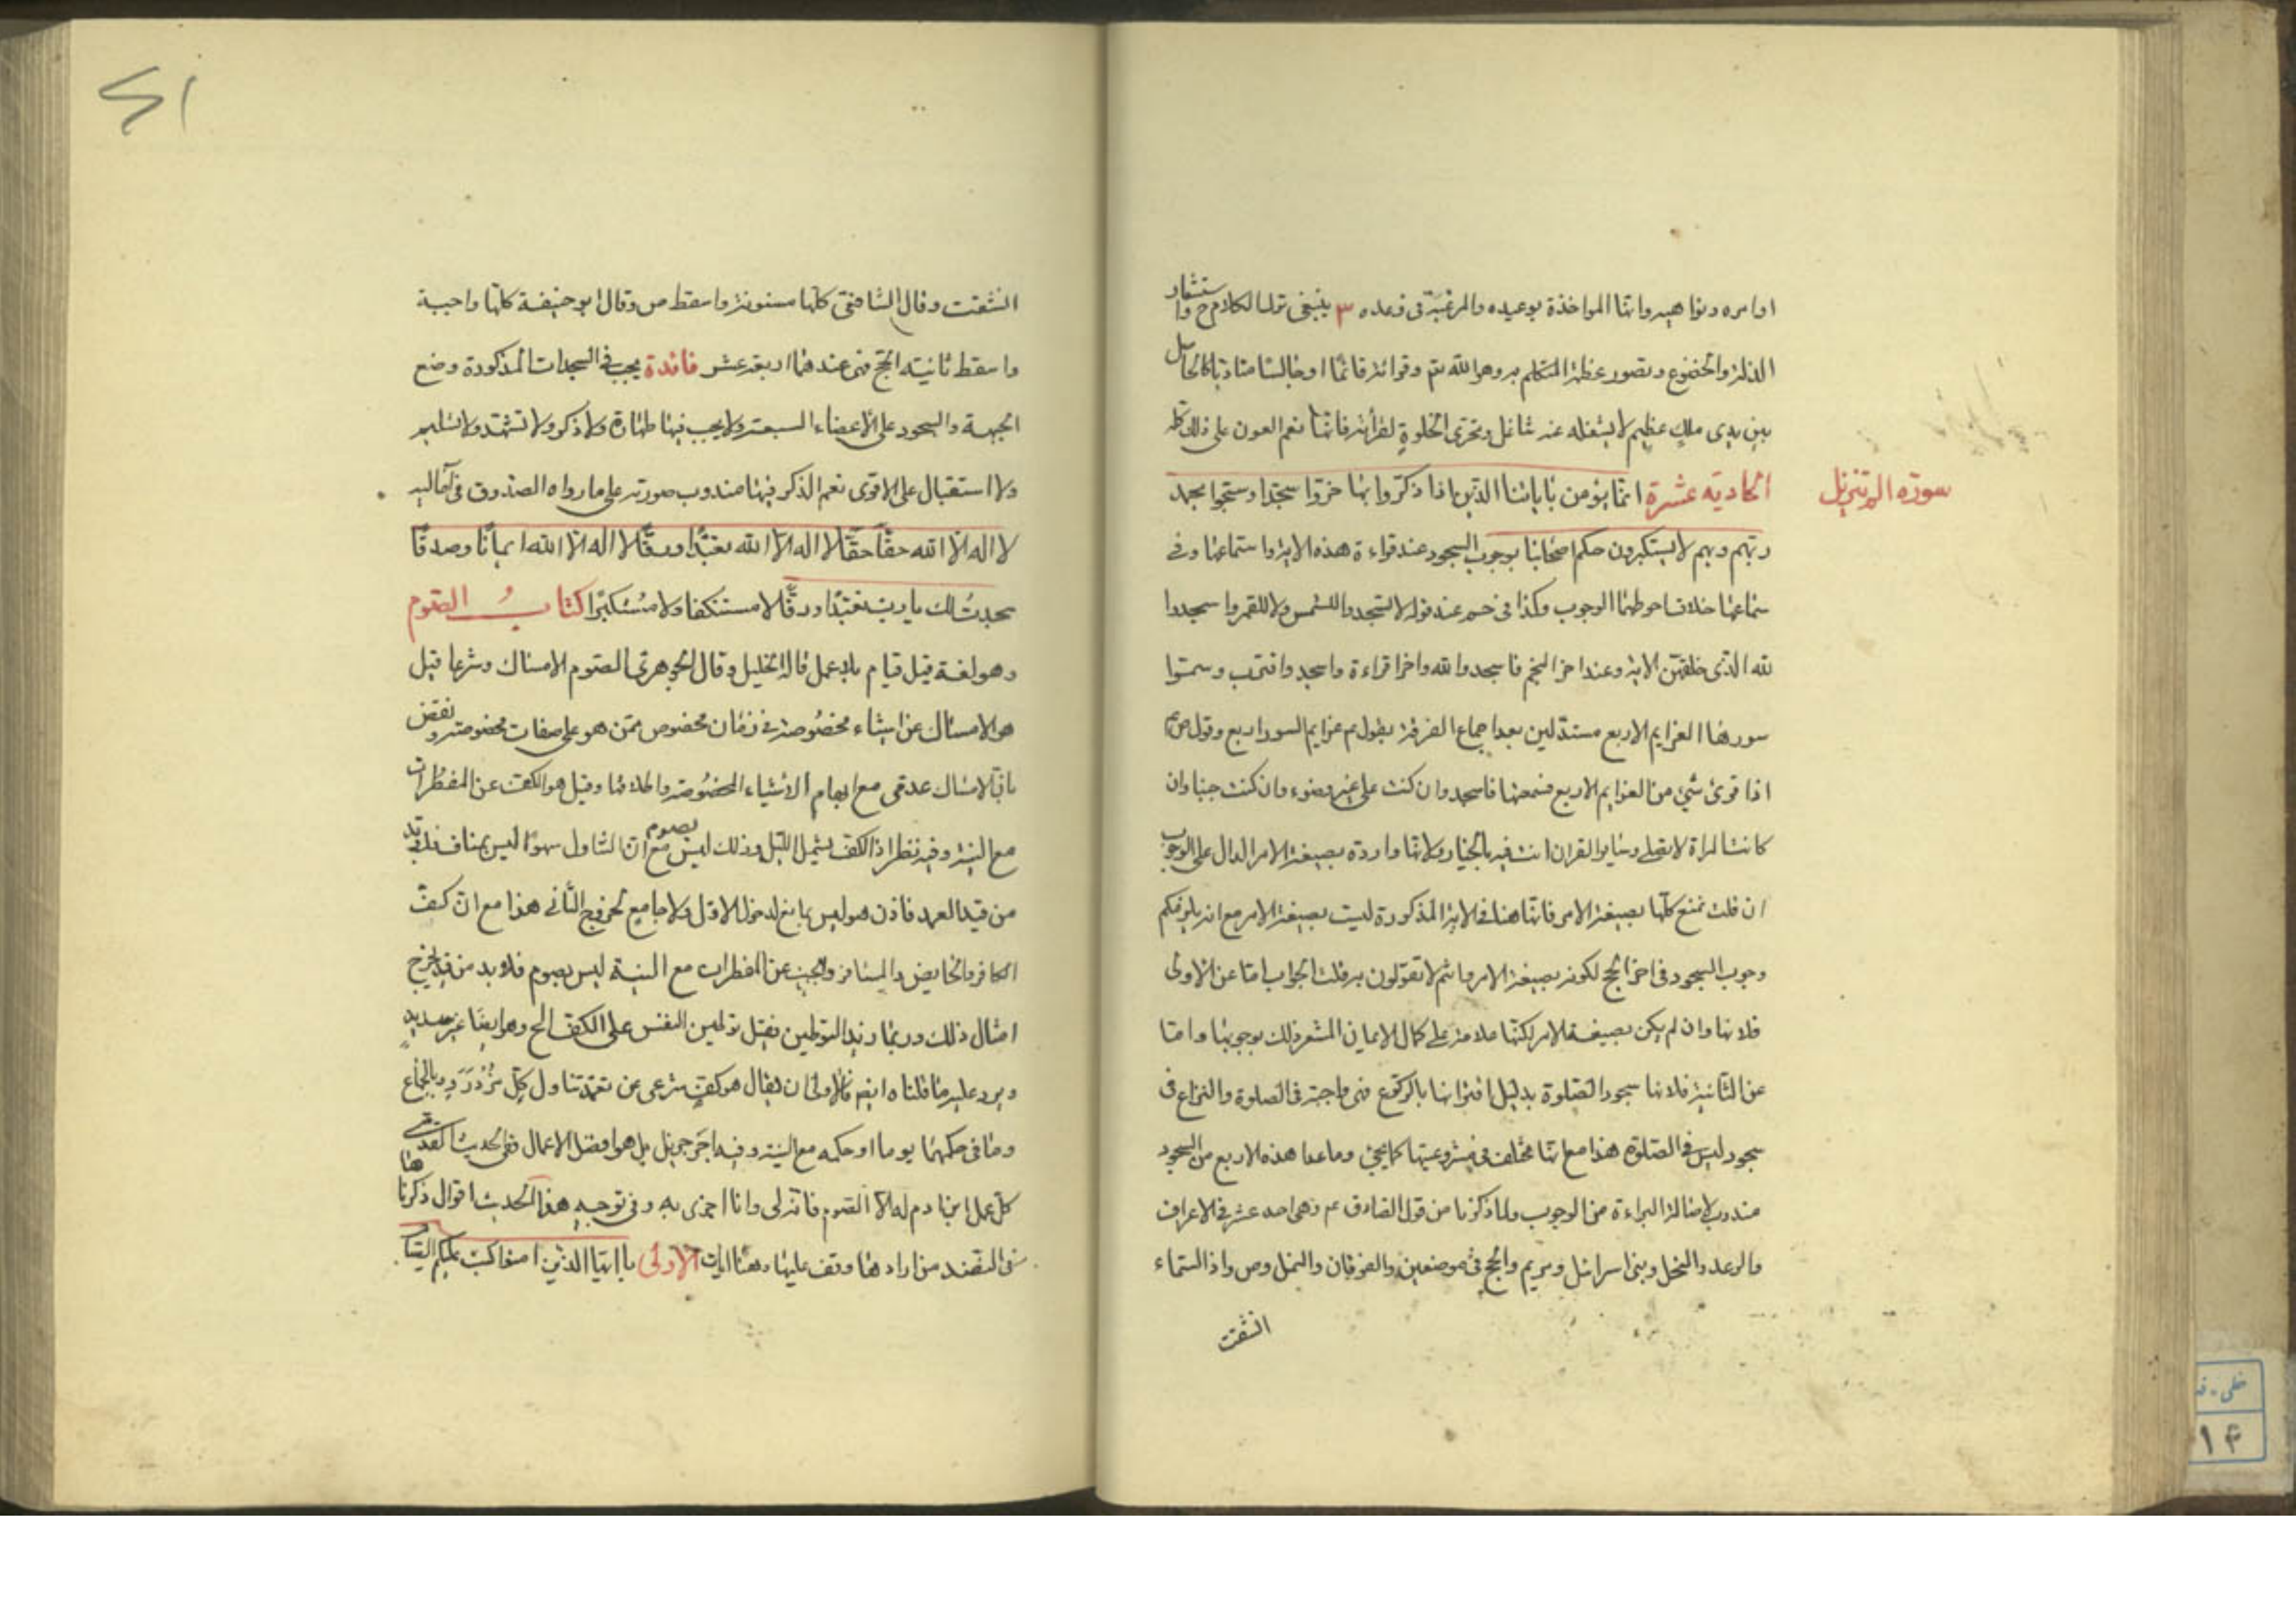 اوامره ونواهيه واما المؤاخذة بوعيده والمرغبة فى وعده ٣ ينبغى ترك الكلام ح واستشعار
الذلة والخضوع وتصور عظمة المتكلم به وهو الله تم وقرائته قائما او جالسا متادبا كالماثل
بين يدى ملك عظيم لا يشغله عنه شاغل وتحرى الخلوة لقرأته فانها نعم العون على ذلك كله
سورة الم تنزيل
الحاديه عشرة انما يؤمن باياتنا الذين اذا ذكروا بها خروا سجدا وسبحوا بحمد
ربهم وهم لا يستكبرون حكم اصحابنا بوجوب السجود عند قراءة هذه الاية واستماعها وفى
سماعها خلاف احوطهما الوجوب وكذا فى حم عند قوله لا تسجدوا للشمس ولا للقمر واسجدوا
لله الذى خلقهن الاية وعند اخر النجم فاسجدوا لله واخر اقراءة واسجد واقترب وسموا
سورها العزايم الاربع مستدلين بعد اجماع الفرقة بقول م عزايم السور اربع وقول ص م
اذا قرئ شئ من العزايم الاربع فسمعتها فاسجد وان كنت على غير وضوء وان كنت جنبا وان
كانت المراة لا تصلى وساير القران انت فيه بالخيار ولانها واردة بصيغة الامر الدال على الوجوب
ان قلت نمنع كلها بصيغة الامر فانها هنا فى الاية المذكورة ليست بصيغة الامر مع انه يلزمكم
وجوب السجود فى اخر الحج لكونه بصيغة الامر وانتم لا تقولون به قلت الجواب اما عن الاولى
فلانها وان لم يكن بصيغة الامر لكنها علامة على كمال الايمان المشعر ذلك بوجوبها واما
عن الثانية فلانها سجود الصلوة بدليل اقترانها بالركوع فهى واجبة فى الصلوة والنزاع فى
سجود ليس فى الصلوة هذا مع انها مختلف فى مشروعيتها كما يجئ وما عدا هذه الاربع من السجود
مندوب لاصالة البراءة من الوجوب ولما ذكرنا من قول الصادق عم وهى احد عشر فى الاعراف
والرعد والنحل وبنى اسرائيل ومريم والحج فى موضعين والفرقان والنمل وص واذا السماء
انشقت
انشقت وقال الشافعى كلها مسنونة واسقط ص وقال ابو حنيفة كلها واجبة
واسقط ثانيته الحج فهى عندهما اربعة عشر فائدة يجب فى السجدات المذكورة وضع
الجبهة والسجود على الاعضاء السبعة ولا يجب فيها طهارة ولا ذكر ولا تشهد ولا تسليم
ولا استقبال على الاقوى نعم الذكر فيها مندوب صورته على ما رواه الصدوق فى اماليه
لا اله الا الله حقا حقا لا اله الا الله تعبدا ورقا لا اله الا الله ايمانا وصدقا
سجدت لك يا رب تعبدا ورقا لا مستنكفا ولا مستكبرا كتاب الصوم
وهو لغة قيل قيام بلا عمل قاله الخليل وقال الجوهرى الصوم الامساك وشرعا قيل
هو الامساك عن اشياء مخصوصة فى زمان مخصوص ممن هو على صفات مخصوصة ونقض
بان الامساك عدمى مع ابهام الاشياء المخصوصة واطلاقها وقيل هو الكف عن المفطرات
مع النية وفيه نظر اذ الكف يشمل الليل وذلك ليس بصوم مع ان التناول سهوا ليس بمناف فلا بد
من قيد العمد فاذن هو ليس بمانع لدخول الاول ولا جامع لخروج الثانى هذا مع ان كف
الكافر والحايض والمسافر والجنب عن المفطرات مع النية ليس بصوم فلا بد من قيد يخرج
امثال ذلك وربما زيد التوطين فقيل توطين النفس على الكف الح وهو ايضا غير سديد
ويرد عليه ما قلناه ايضا فالاولى ان يقال هو كف شرعى عن تعمد تناول كل مزدرد وبالجماع
وما فى حكمهما يوما او حكمه مع النية وفيه اجر جزيل بل هو افضل الاعمال ففى الحديث القدسى
كل عمل ابن ادم له الا الصوم فانه لى وانا اجزى به وفى توجيه هذا الحديث اقوال ذكرناها
فى النضد من ارادها وقف عليها وهنا ايات الاولى يا ايها الذين امنوا كتب عليكم الصيام